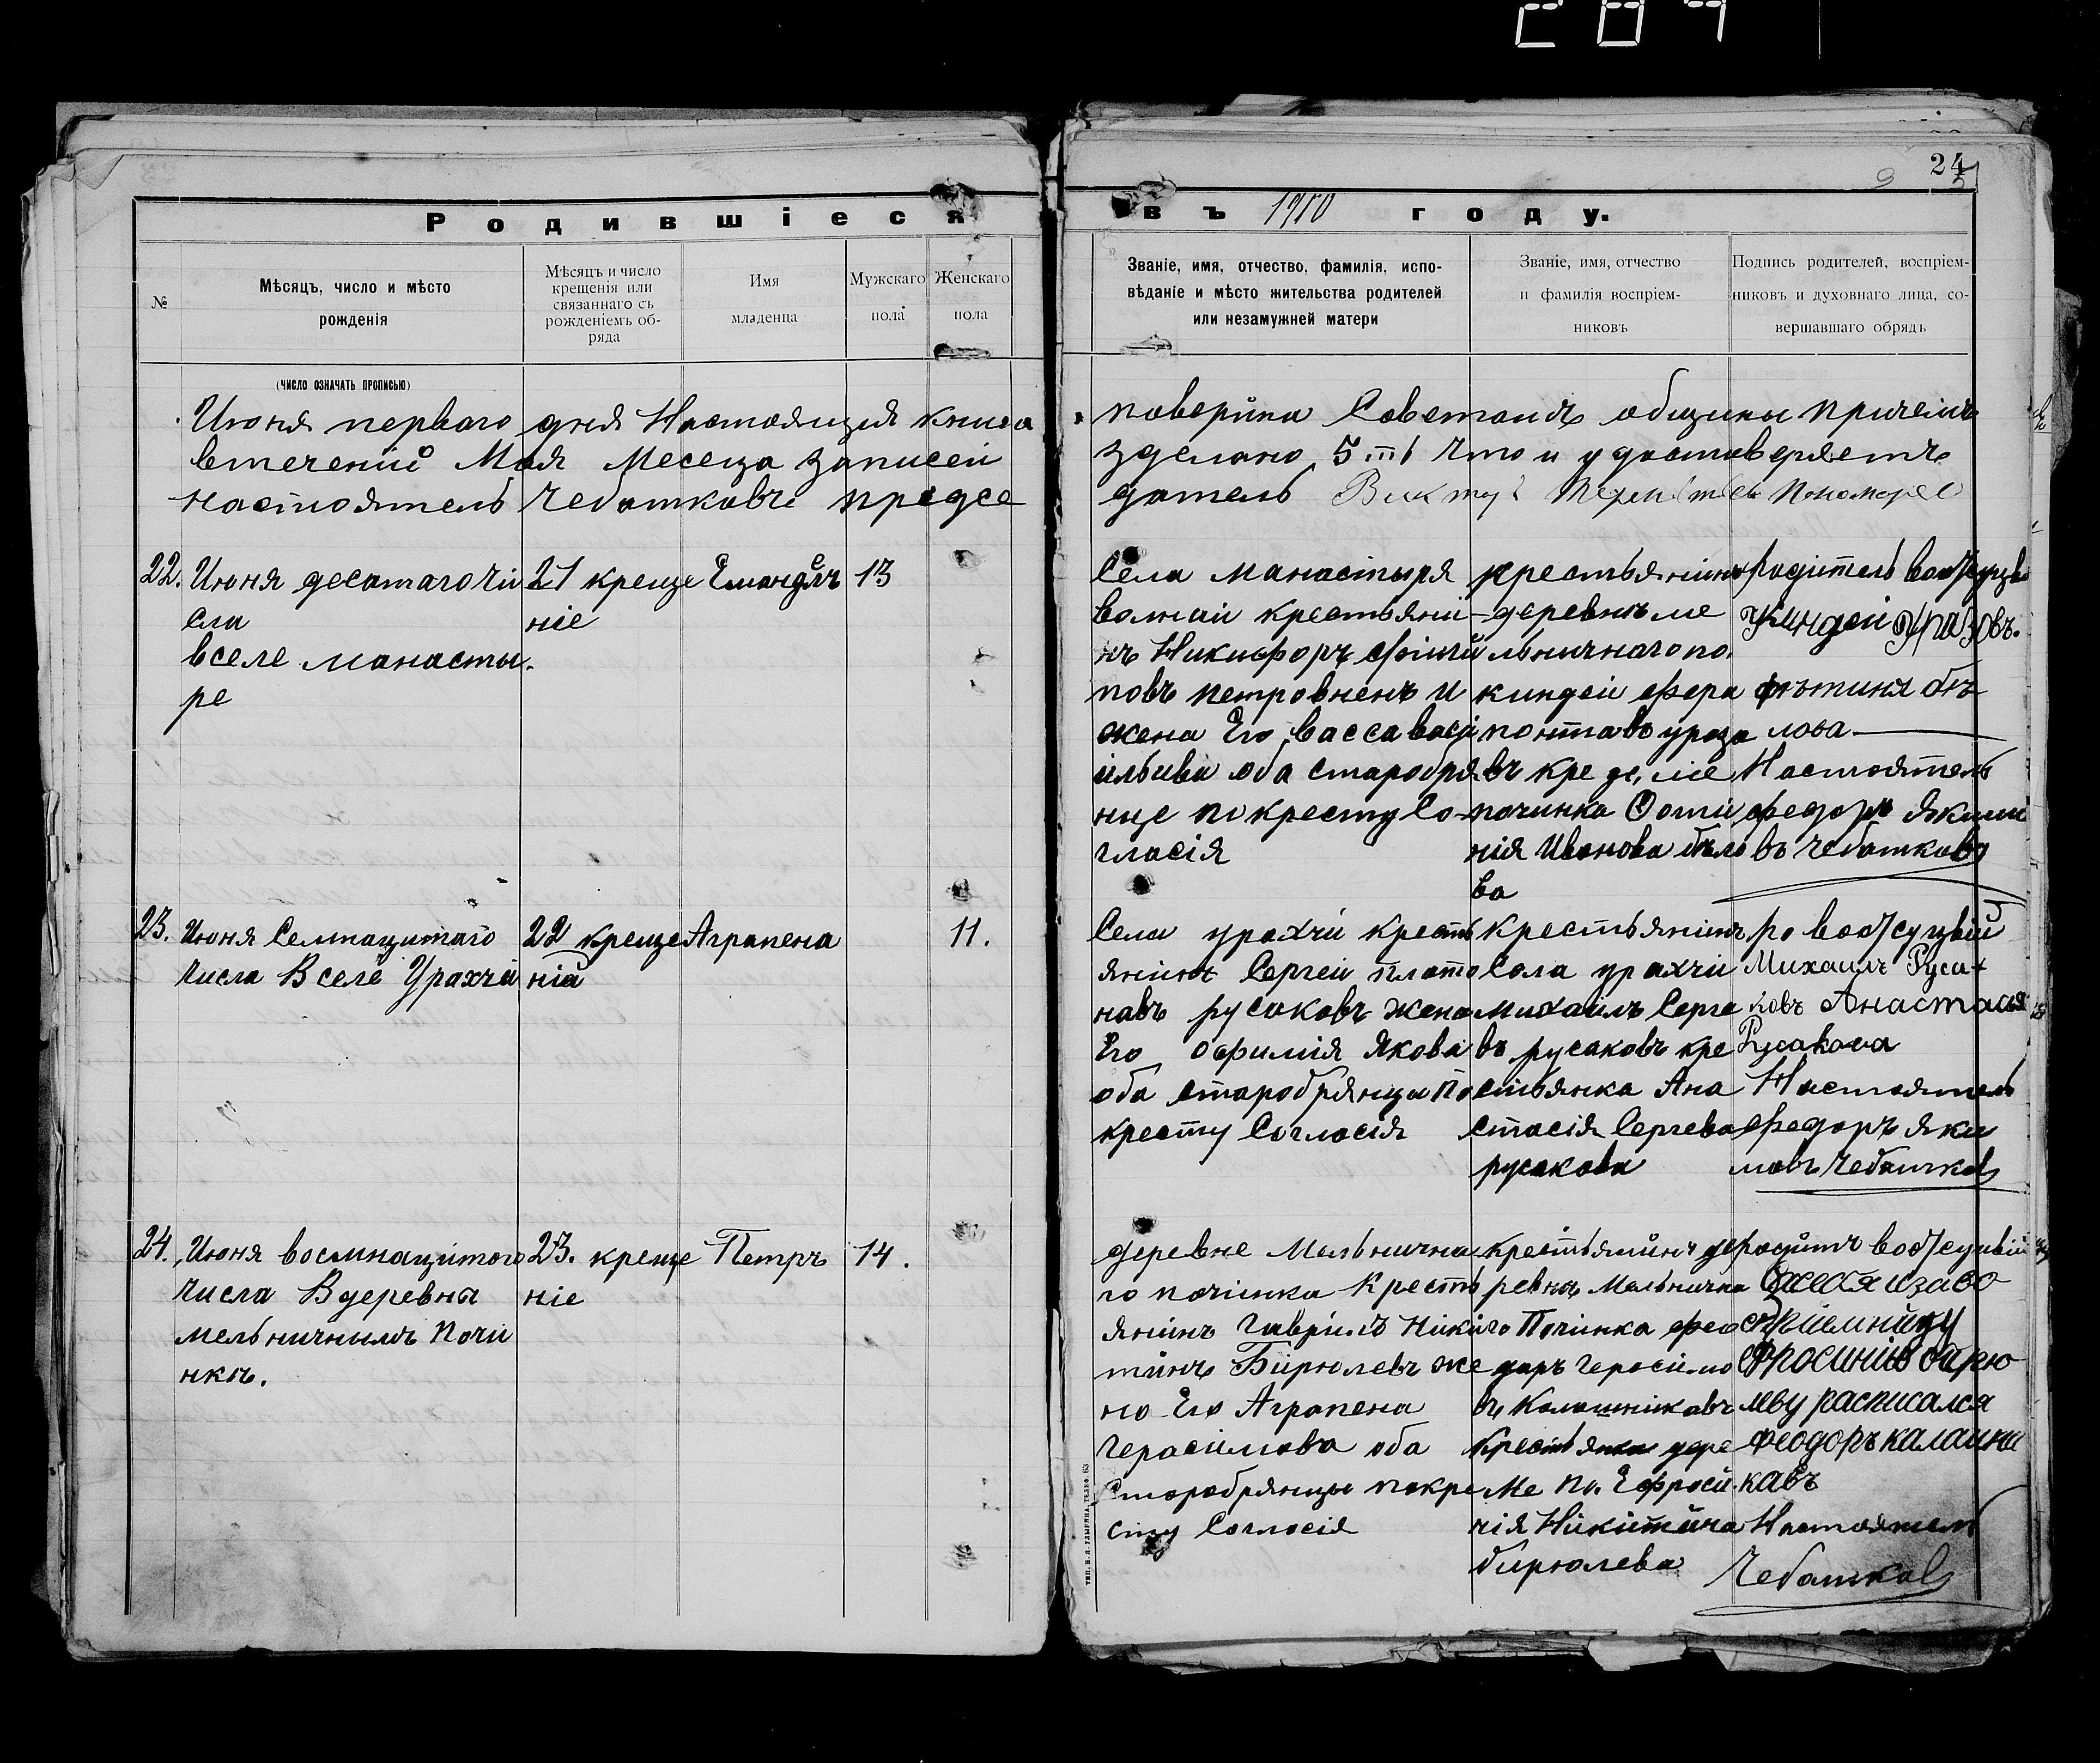 284
24
Родившіеся въ 1910 году.
№
Мѣсяцъ, число и мѣсто
рожденія
Мѣсяцъ и число
крещенія или
связаннаго съ
рожденіемъ об-
ряда
Имя
младенца
Мужскаго
пола
Женскаго
пола
Званіе, имя, отчество, фамилія, испо-
вѣданіе и мѣсто жительства родителей
или незамужней матери
Званіе, имя, отчество
и фамилія воспріем-
никовъ
Подпись родителей, воспріем-
никовъ и духовнаго лица, со-
вершавшаго обрядъ
(число означать прописью)
Июня перваго дня Настоящия книга поверина Советомъ общины причемъ
втечении Мая Месеца записеи зделано 5 ть Что и удостоверяетъ
настоятель Чебатковъ предсе датель
22.
Июня десатаго чи
сла
вселе манасты.
ре
21 креще
ніе
13
Села манастыря
волжаи крестьяни
нъ Никифоръ
повъ петровнень и
жена Его, васса васи
ильива оба старобря
нце покресту Со-
гласія
крестьянинъ
деревнъ ме
льничнаго по.
киндеи ефера
понтавъ ураза
въ кре де, ме
починка Фоти
нія Иванова бѣло
ва
Родитель
Киндеи Уразовъ.
фѣтиня бѣ
лова
Настоятель
федоръ Якими
въ Чебатковъ
23.
Июня Семнацитаго
числа Вселе Урахчи
22 креще
нія
Аграпена
11.
Села урахчи кресть
янинъ Сергеи плато
навъ русаковъ жена
Его Офимія Якова
оба старобрянци По
кресту Согласія
крестьянинъ
Села урахчи
михаилъ Серге
въ русаковъ кре
стьянка Ана
стасія Сергева
русакова
Михаилъ Руса
ковъ Анастасия
Русакова
Настоятель
федоръ яки
мовъ Чебатков
24.
Июня восмнацитого
числа Вдеревна
мельничнымъ Почи
нкъ.
23. креще
ніе
Петръ
14.
деревне Мельнична
го починка Кресть
янинъ Гаврилъ Ники
тинъ Бирюлевъ же
на Его Аграпена
Герасимова оба
Старобрянцы покре
сту Согласія
крестьянинъ де
ревнъ Мельнична
го Починка фео
даръ Герасимо
въ Калашниковъ
Крестьянка дере
Ме По. Ефроси
нія Никитина
бирюлева
Ефросинию бирю
леву расписался
феодоръ калашни
кавъ
Настоятель
Чебатков